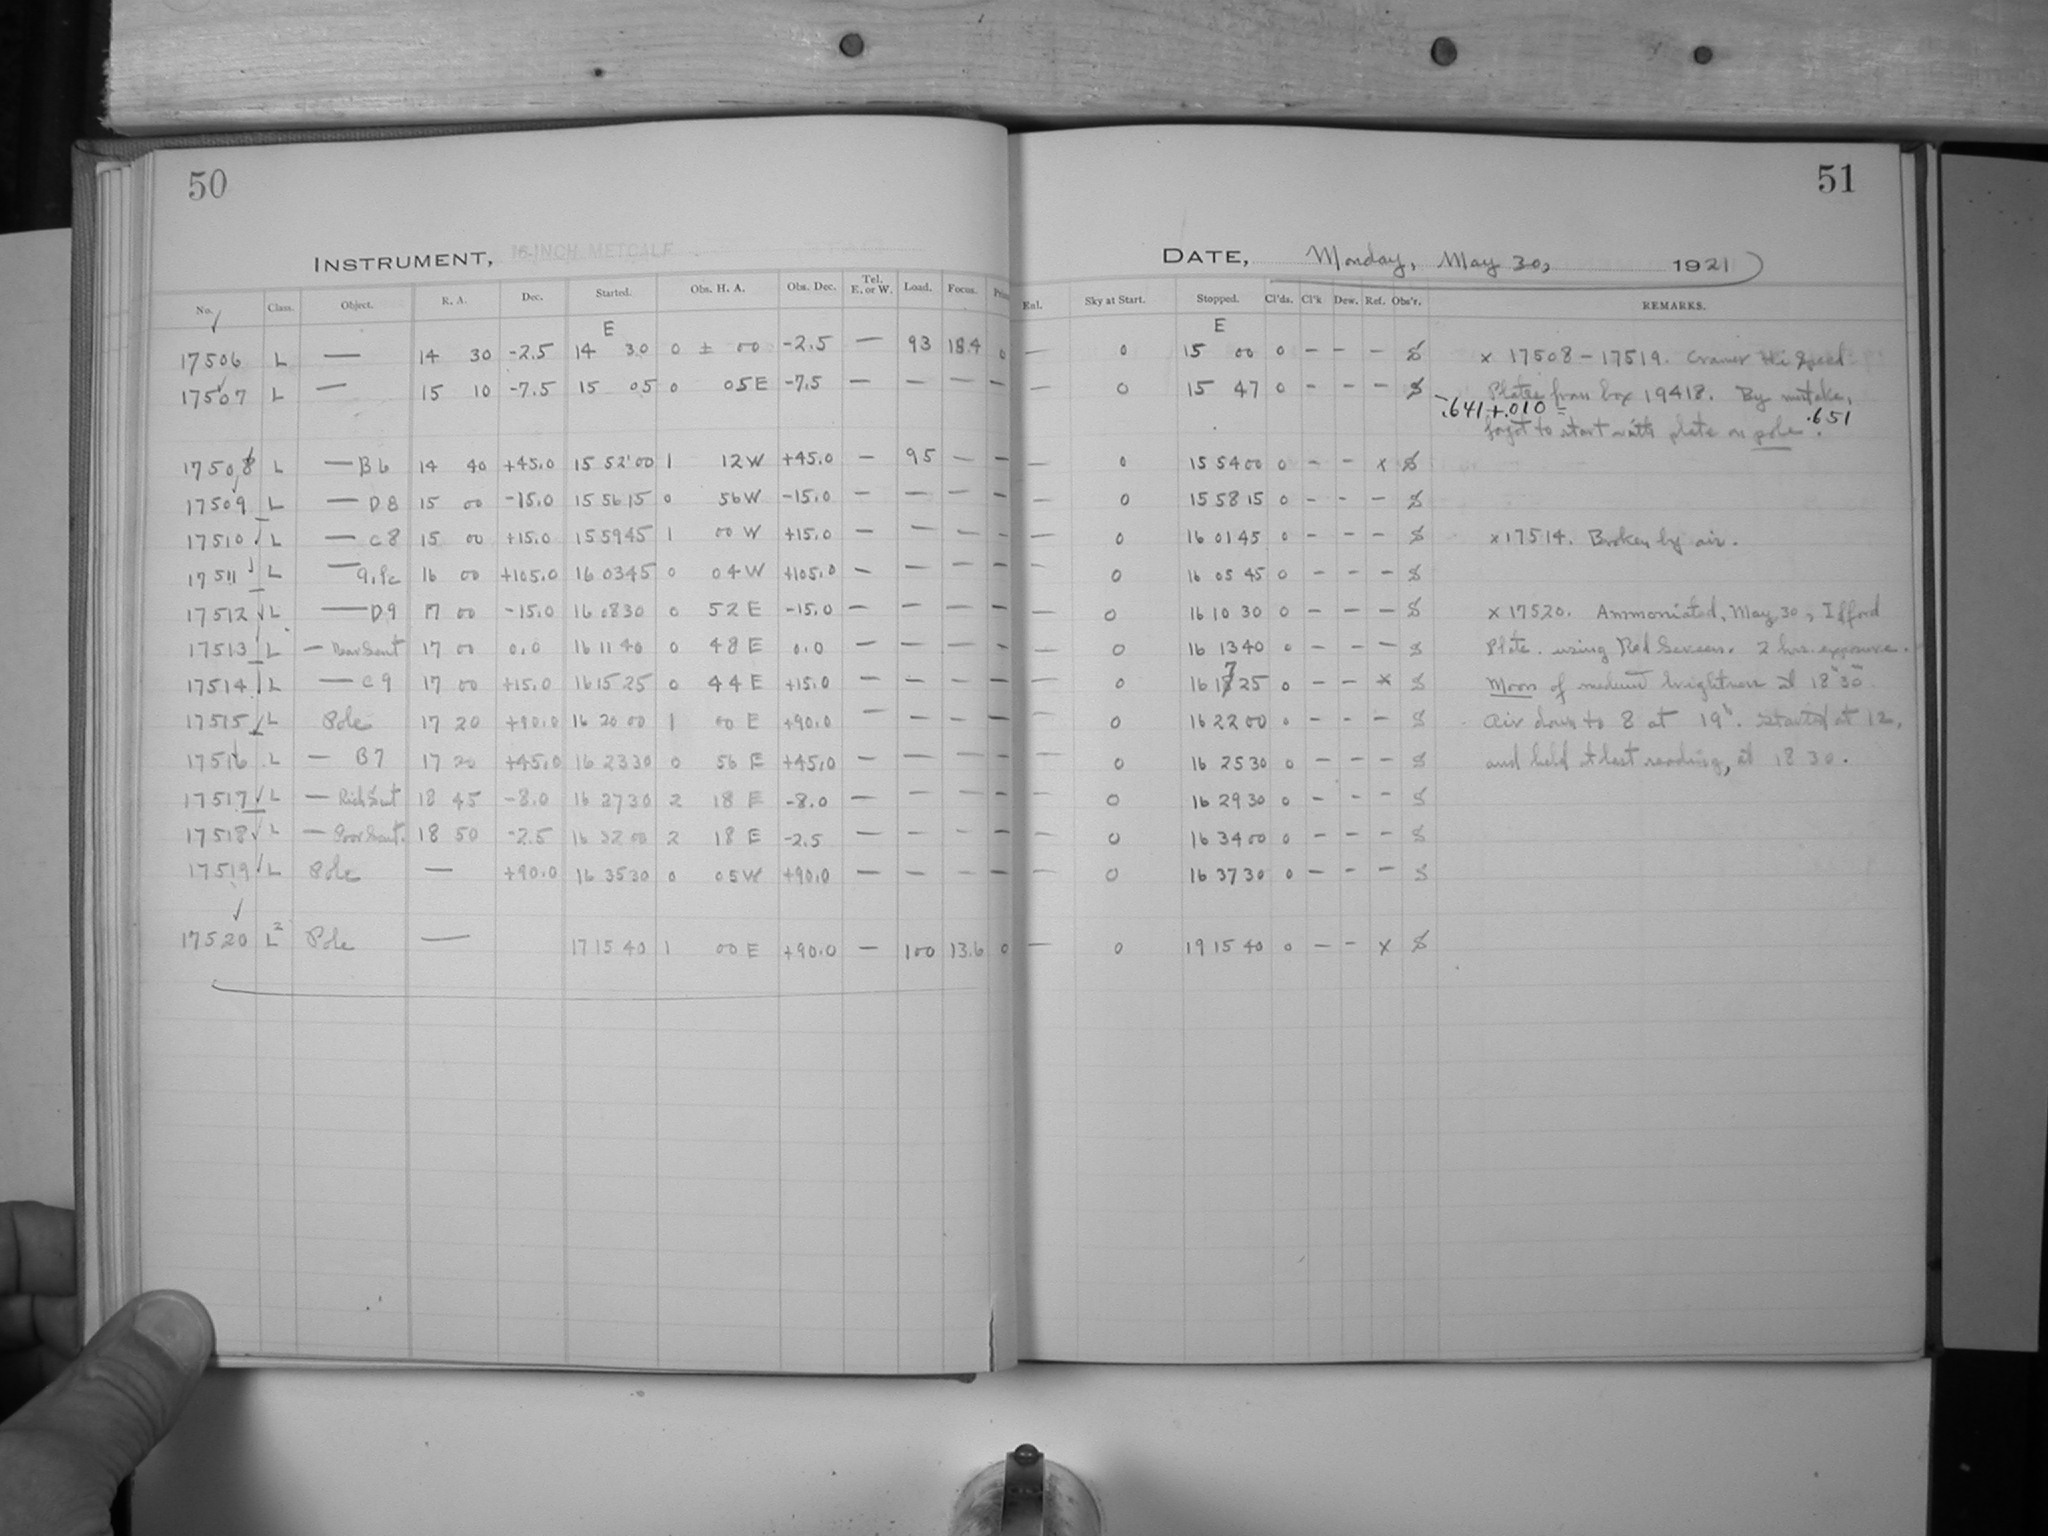 50
INSTRUMENT, 16-INCH METCALF
No. Class. Object. R. A. Dec. Started. Obs. H. A. Obs. Dec. Tel. E. or W. Load. Focus.
E
17506 L — 14 30 -2.5 14 30 0 ± 00 -2.5 — 93 18.4 0
17507 L — 15 10 -7.5 15 05 0 05 E -7.5 — — — —
17508 L — B6 14 40 +45.0 15 52 00 1 12 W +45.0 — 95 — —
17509 L — D8 15 00 -15.0 15 56 15 0 56 W -15.0 — — — —
17510 L — C8 15 00 +15.0 15 59 45 1 00 W +15.0 — — — —
17511 L — 9, Pc 16 00 +105.0 16 03 45 0 04 W +105.0 — — — —
17512 L — D9 17 00 -15.0 16 08 30 0 52 E -15.0 — — — —
17513 L — 17 00 0.0 16 11 40 0 48 E 0.0 — — — —
17514 L — C9 17 00 +15.0 16 15 25 0 44 E +15.0 — — — —
17515 L Pole 17 20 +90.0 16 20 00 1 00 E +90.0 — — — —
17516 L — B7 17 20 +45.0 16 23 30 0 56 E +45.0 — — — —
17517 L — Rich Scut 18 45 -8.0 16 27 30 2 18 E -8.0 — — — —
17518 L — Poor Scut. 18 50 -2.5 16 32 00 2 18 E -2.5 — — — —
17519 L Pole — +90.0 16 35 30 0 05 W +90.0 — — — —
17520 L2 Pole — 17 15 40 1 00 E +90.0 — 100 13.6 0
51
DATE, Monday, May 30, 1921
Enl. Sky at Start. Stopped. Cl'ds. Cl'k Dew. Ref. Obs'r. REMARKS.
E
— 0 15 00 0 — — — S x 17508 - 17519. Cramer Hi Speed
— 0 15 47 0 — — — S Plates from box 19418. By mistake,
-.641 + .010 = .651
forgot to start with plate on pole.
— 0 15 54 00 0 — — x S
— 0 15 58 15 0 — — — S
— 0 16 01 45 0 — — — S x 17514. Broken by air.
— 0 16 05 45 0 — — — S
— 0 16 10 30 0 — — — S x 17520. Ammoniated, May 30, Ilford
— 0 16 13 40 0 — — — S Plate. using Red Screen. 2 hrs. exposure.
— 0 16 17 25 0 — — x S Moon of medium brightness at 18h 30m
— 0 16 22 00 0 — — — S Air down to 8 at 19h. Started at 12,
— 0 16 25 30 0 — — — S and held at last reading, at 18 30.
— 0 16 29 30 0 — — — S
— 0 16 34 00 0 — — — S
— 0 16 37 30 0 — — — S
— 0 19 15 40 0 — — x S